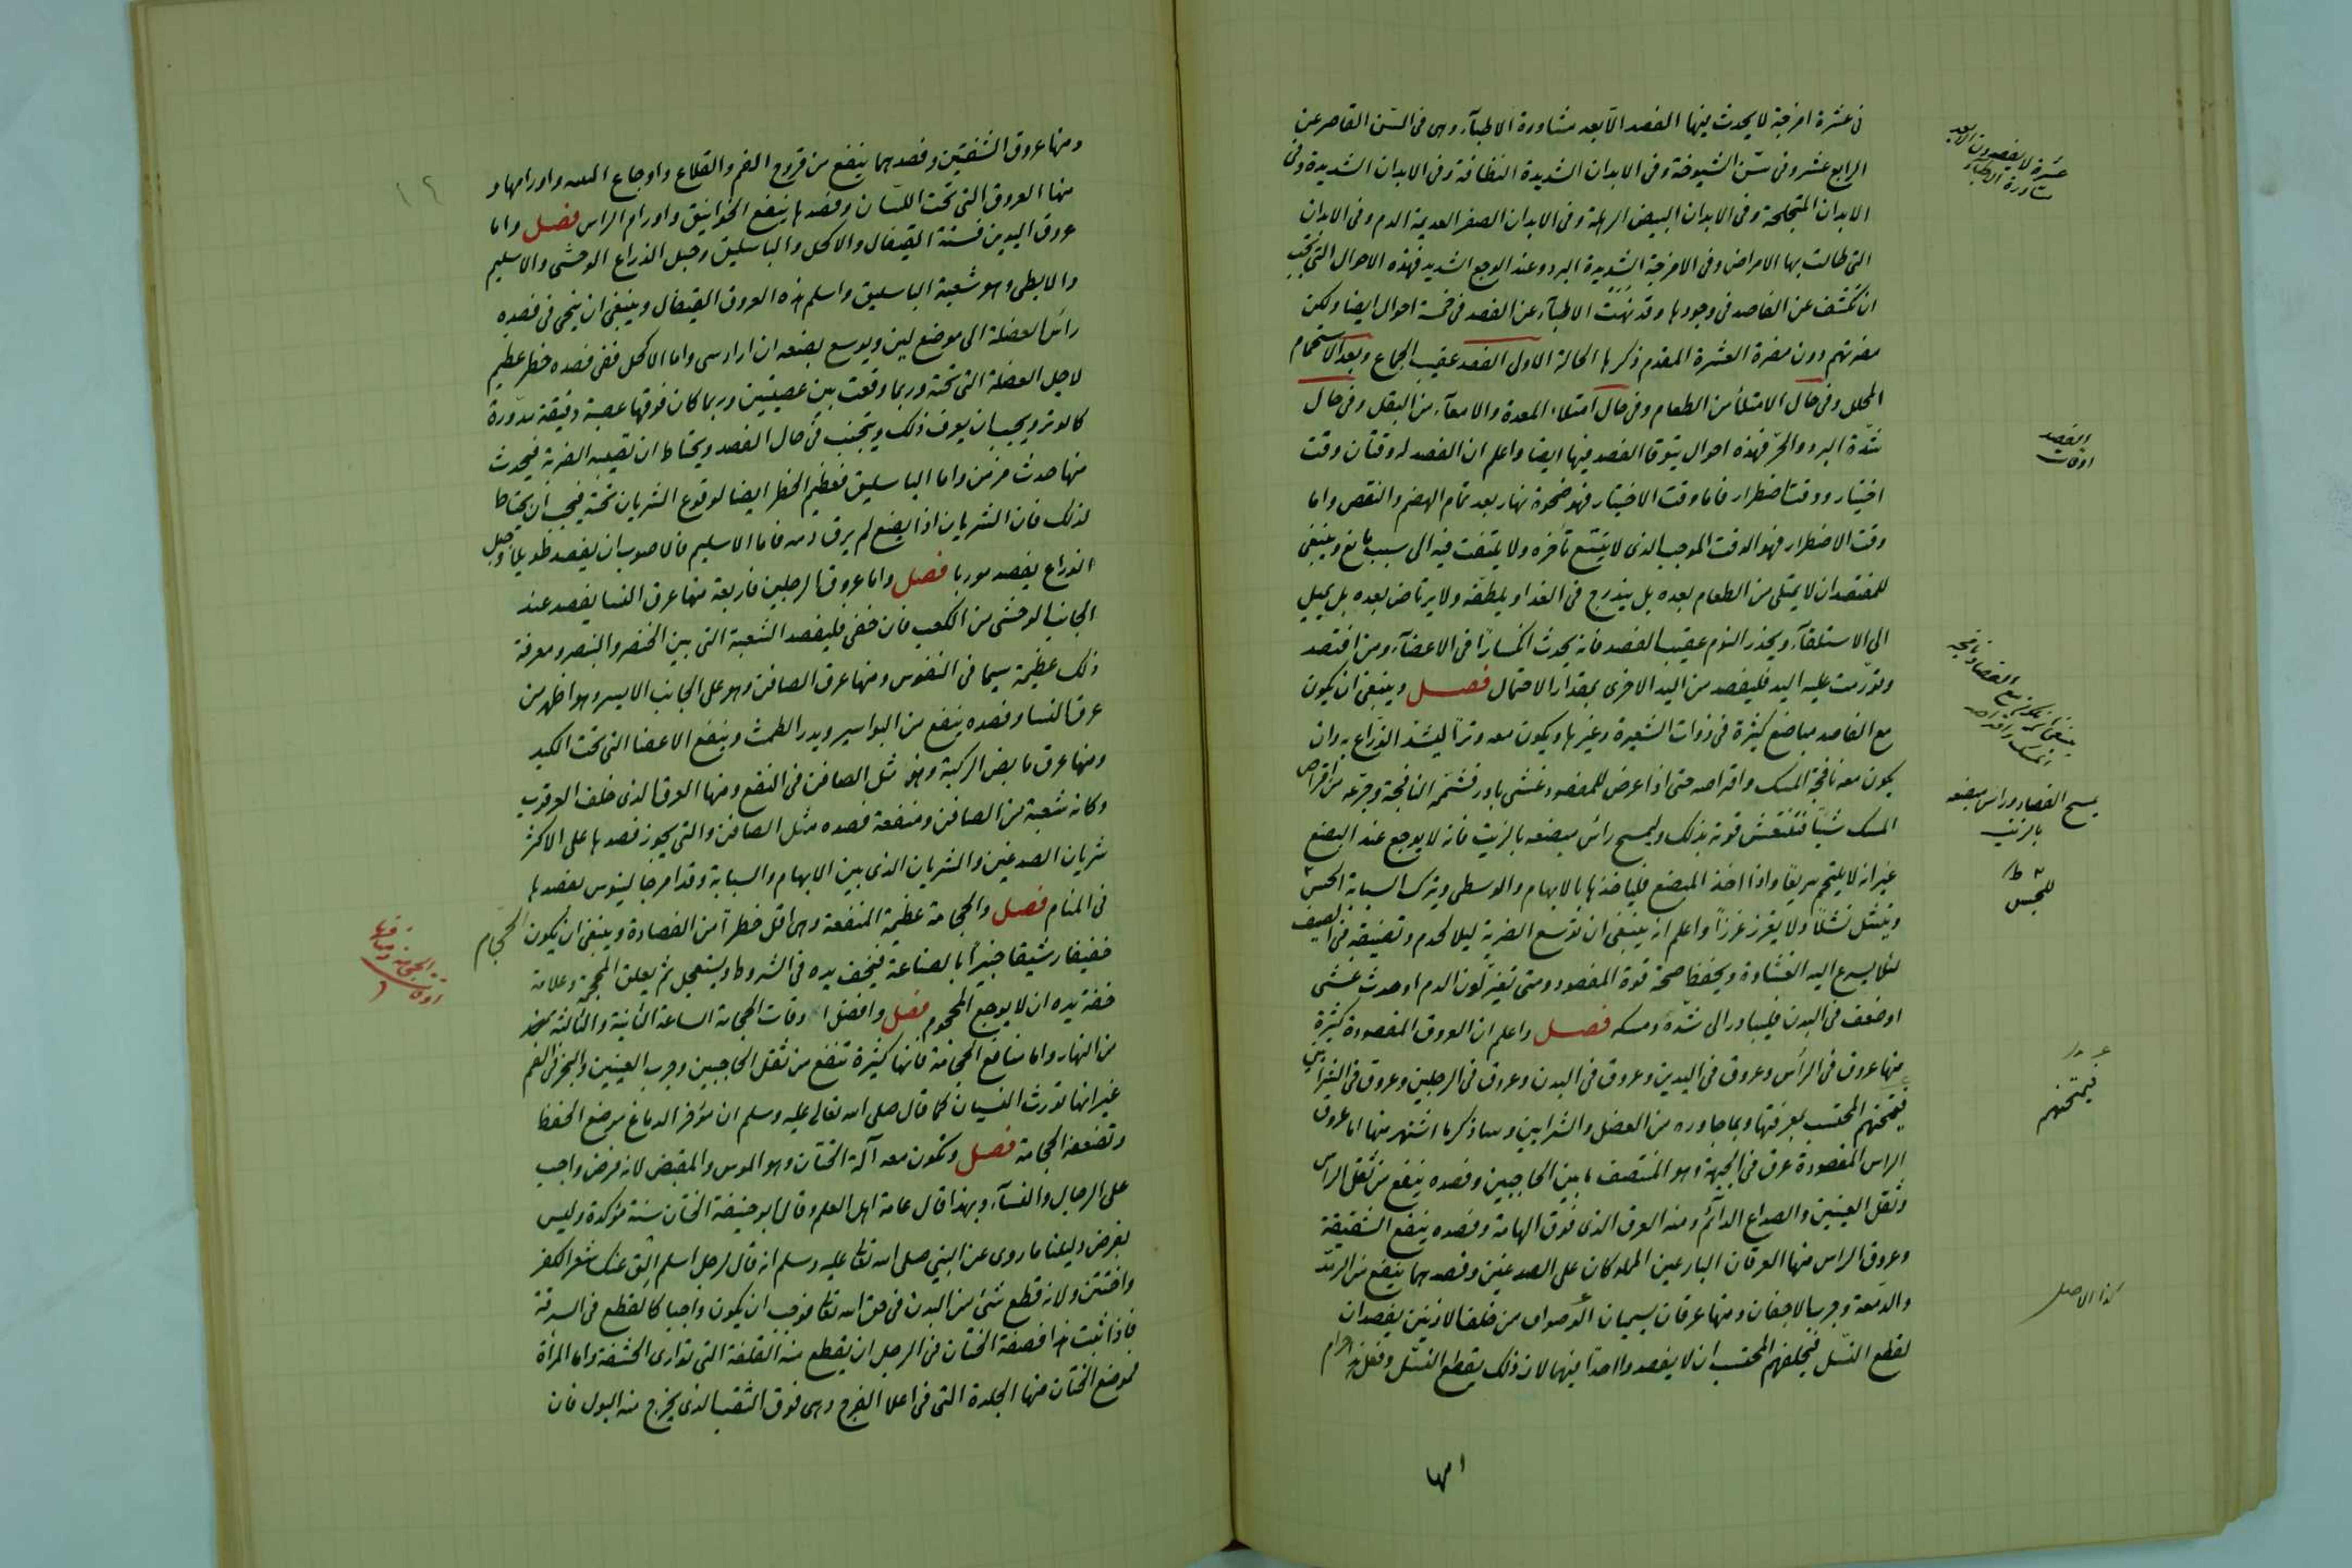 فى عشرة امزجة لا يحدث فيها الفصد الا بعد مشاورة الاطبآء وهى فى السّن القاصر عن
الرابع عشر وفى سّن الشيوخة وفى الابدان الشديدة النظافة وفى الابدان الشديدة وفى
الابدان المتجلحة وفى الابدان البيض الرهلة وفى الابدان الصفر العديمة الدم وفى الابدان
التى طالت بها الامراض وفى الامزجة الشديدة البرد وعند الوجع الشديد فهذه الاحوال التى تجب
ان تكشف عن الفاصد فى وجودها وقد نهت الاطبآء عن الفصد فى خمسة احوال ايضا ولكن
مضرتهم دون مضرة العشرة المقدم ذكرها الحالة الاولى الفصد عقيب الجماع وبعد الاستحمام
المحلل وفى حال الامتلأ من الطعام وفى حال امتلاء المعدة والامعآء من الثفل وفى حال
شدّة البرد والحرّ فهذه احوال يتوقا الفصد فيها ايضا واعلم ان الفصد له وقتان وقت
اختيار ووقت اضطرار فاما وقت الاختيار فهو ضحوة نهار بعد تمام الهضم والنقص واما
وقت الاضطرار فهو الوقت الموجب الذى لا يتسع تأخره ولا يلتفت فيه الى سبب مانع وينبغى
للمفتصد ان لا يمتلى من الطعام بعده بل يتدرج فى الغدا ويلطفه ولا يرتاض بعده بل يميل
الى الاستلقآء ويحذر النوم عقيب الفصد فانه يحدث انكسارًا فى الاعضآء ومن افتصد
وتورّمت عليه اليد فليفصد من اليد الاخرى بمقدار الاحتمال فصل وينبغى ان يكون
مع الفاصد مباضع كثيرة فى ذوات الشعيرة وغيرها ويكون معه وترًا ليشد الذراع به وان
يكون معه نافجة المسك واقراصه حتى اذا عرض للمفصود غشى بادر فشمّه النافجة وجرعه من اقراص
المسك شيئًا فتنتعش قوته بذلك وليمسح رأس مبضعه بالزيت فانه لا يوجع عند البضع
غير انه لا يلتحم سريعًا واذا اخذ المبضع فلياخذها بالابهام والوسطى ويترك السبابة للجسّ
وينتثل نثلاً ولا يغرز غرزاً واعلم انه ينبغى ان توسع الضربة ليلا تحدم وتضيقه فى الصيف
لئلا يسرع اليه الغشاوة ويحفظ صحة قوة المفصود ومتى تغير لون الدم او حدث غشى
او ضعف فى البدن فليبادر الى شدّه ومسكه فصل واعلم ان العروق المفصودة كثيرة
منها عروق فى الرأس وعروق فى اليدين وعروق فى البدن وعروق فى الرجلين وعروق فى الشرايين
فيمتحنهم المحتسب بمعرفتها وبما جاوره من العضل والشرايين وساذكر ما اشتهر منها اما عروق
الراس المفصودة عرق فى الجبهة وهو المنتصف ما بين الحاجبين وفصده ينفع من ثقل الراس
وثقل العينين والصداع الدائم ومنه العرق الذى فوق الهامة وفصده ينفع الشقيقة
وعروق الراس منها العرقان البارعين الملوكان على الصدغين وفصدهما ينفع من الرمد
والدّمعة وجرب الاجفان ومنها عرقان يسميان الدصواف من خلف الاذنين يفصدان
لقطع النسل فيحلفهم المحتسب ان لا يفصد واحدا منهما لان ذلك يقطع النسل وفعله حرام
عشرة لا يفصدون الا بعد
مشاورة الاطباء
الفصد
اوقات
ينبغى ان يكون مع الفصاد نافجة
المسك واقراصه
يمسح الفصاد راس مبضعه
بالزيت
للجس
فيمتحنهم
كذا الاصل
امها
ومنها عروق الشفتين وفصدهما ينفع من قروح الفم والقلاع واوجاع اللثه واورامها و
منها العروق التى تحت اللسان وفصدها ينفع الخوانيق واورام الراس فصل واما
عروق اليدين فستة القيفال والاكحل والباسليق وحبل الذراع الوحشى والاسليم
والابطى وهو شعبة الباسليق واسلم هذه العروق القيفال وينبغى ان ينحى فى فصده
راس العضلة الى موضع لين ويوسع بضعه ان اراد سى واما الاكحل ففى فصده خطر عظيم
لاجل العضلة التى تحته وربما وقعت بين عصبتين وربما كان فوقها عصبة دقيقة مدوّرة
كالوتر ويجب ان يعرف ذلك ويتجنب فى حال الفصد ويحتاط ان تصيبه الضربة فيحدث
منها حدث مزمن واما الباسليق فعظيم الخطر ايضا لوقوع الشريان تحته فيجب ان يحتاط
لذلك فان الشريان اذا ابضع لم يرق دمه فاما الاسليم فالاصوب ان يفصد طويلا وحبل
الذراع يفصد موربا فصل واما عروق الرجلين فاربعة منها عرق النسا يفصد عند
الجانب الوحشى من الكعب فان خفى فليفصد الشعبة التى بين الخنصر والبنصر ومعرفة
ذلك عظيمة سيما فى النفوس ومنها عرق الصافن وهو على الجانب الايسر وهو اظهر من
عرق النسا وفصده ينفع من البواسير ويدر الطمث وينفع الاعضا التى تحت الكبد
ومنها عرق مابض الركبة وهو مثل الصافن فى النفع ومنها العرق الذى خلف العرقوب
وكانه شعبة من الصافن ومنفعة فصده مثل الصافن والتى يجوز فصدها على الاكثر
شريان الصدغين والشريان الذى بين الابهام والسبابة وقد امر جالينوس بفصدها
فى المنام فصل والحجامة عظيمة المنفعة وهى اقل خطرًا من الفصادة وينبغى ان يكون الحجام
خفيفا رشيقا خبيرًا بالصناعة فيخف يده فى الشروط ويستعجل ثم يعلق المحجمة وعلامة
خفة يده ان لا يوجع المحجوم فصل وافضل اوقات الحجامة الساعة الثانية والثالثة
من النهار واما منافع الحجامة فانها كثيرة تنفع من ثقل الحاجبين وجرب العينين والبخر فى الفم
غير انها تورث النسيان كما قال صلى الله تعالى عليه وسلم ان مؤخر الدماغ موضع الحفظ
وتضعفه الحجامة فصل وتكون معه آلة الختان وهو الموس والمقبض لانه فرض واجب
على الرجال والنسآء وبهذا قال عامة اهل العلم وقال ابو حنيفة الختان سنة مؤكدة وليس
بفرض دليلنا ما روى عن النبى صلى الله تعالى عليه وسلم انه قال لرجل اسلم الق عنك شعر الكفر
واختتن ولانه قطع شئ من البدن فى حق الله تعالى فوجب ان يكون واجبا كالقطع فى السرقة
فاذا ثبت هذا فصفة الختان فى الرجل ان يقطع منه القلفة التى توارى الحشفة واما المرأة
فموضع الختان منها الجلدة التى فى اعلا الفرج وهى فوق الثقب الذى يخرج منه البول فان
١٢